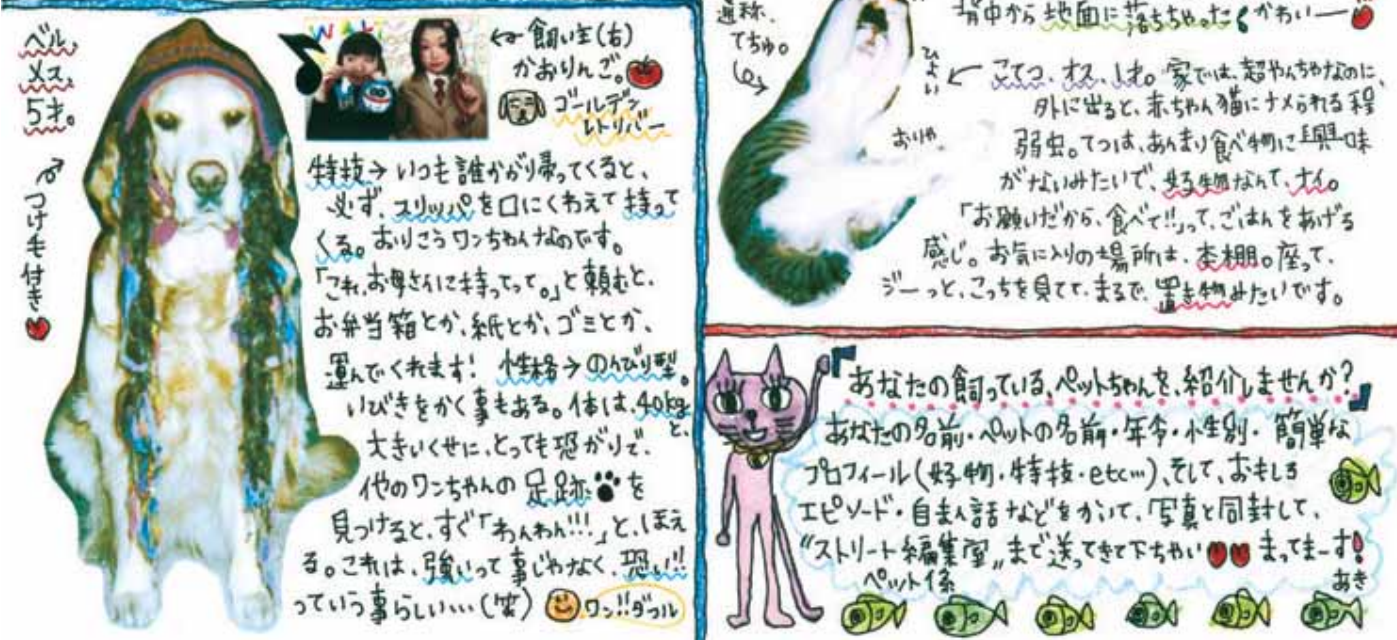 ベル、
メス、
5才。
つけ毛付き
← 飼い主(右)
かおりんご。
ゴールデン
レトリバー
特技→いつも誰かが帰ってくると、
必ず、スリッパを口にくわえて持って
くる。おりこうワンちゃんなのです。
「これ、お母さんに持ってって。」と頼むと、
お弁当箱とか、紙とか、ゴミとか、
運んでくれます! 性格→のんびり型。
いびきをかく事もある。体は、40kgと、
大きいくせに、とっても恐がりで、
他のワンちゃんの足跡を
見つけると、すぐ「わんわん!!!」と、ほえ
る。これは、強いって事じゃなく、恐い!!
っていう事らしい…(笑) ワン!!ダフル
通称、
てちゅ。
ひょい
おりゃ
背中から地面に落ちちゃった かわいー
← こてつ、オス、1才。家では、超やんちゃなのに、
外に出ると、赤ちゃん猫にナメられる程
弱虫。てつは、あんまり食べ物に興味
がないみたいで、好物なんて、ナイ。
「お願いだから、食べて!!」って、ごはんをあげる
感じ。お気に入りの場所は、本棚。座って、
ジーっと、こっちを見てて、まるで、置き物みたいです。
「あなたの飼っている、ペットちゃんを、紹介しませんか?」
あなたの名前・ペットの名前・年令・性別・簡単な
プロフィール(好物・特技・etc…)、そして、おもしろ
エピソード・自まん話などをかいて、写真と同封して、
"ストリート編集室〟まで送ってきて下ちゃい まってまーす!
ペット係
あき